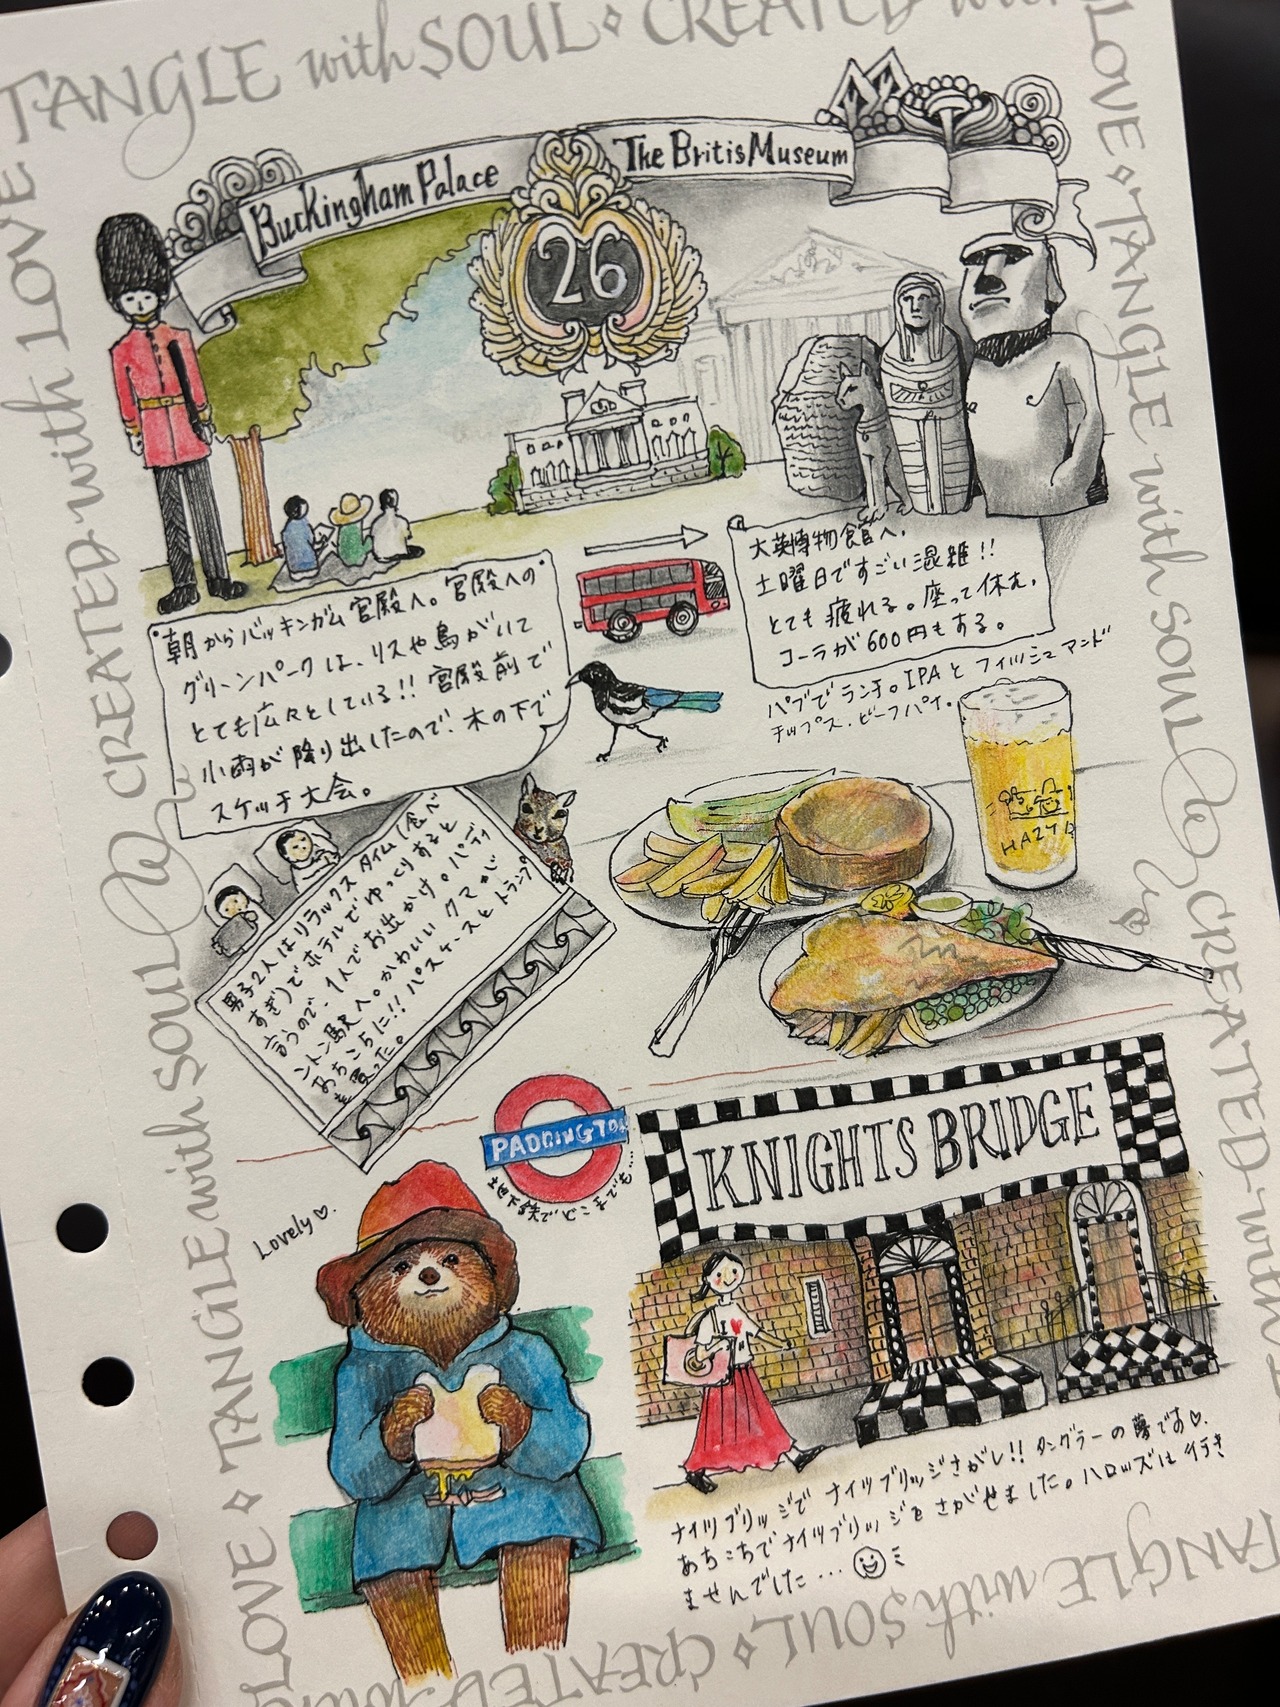 TANGLE with SOUL ◇ CREATED with
LOVE ◇ TANGLE with SOUL
CREATED with
LOVE ◇ TANGLE with SOUL
CREATED with LOVE
TANGLE with SOUL ◇ CREATED
Buckingham Palace
26
The BritisMuseum
朝からバッキンガム宮殿へ。宮殿への
グリーンパークは、リスや鳥がいて
とても広々としている!!宮殿前で
小雨が降り出したので、木の下で
スケッチ大会。
大英博物館へ。
土曜日ですごい混雑!!
とても疲れる。座って休む。
コーラが600円もする。
パブでランチ。IPAとフィッシュアンド
チップス、ビーフパイ。
HAZY
男子2人はリラックスタイム(食べ
すぎ)でホテルでゆっくりすると
言うので、1人でお出かけ。パディ
ントン駅へ。かわいいクマが
あちこちに!!パスケースとトランプ
を買った。
PADDINGTON
地下鉄でどこまでも...
Lovely♡.
KNIGHTS BRIDGE
I ♥
ナイツブリッジでナイツブリッジさがし!!タングラーの夢です♡.
あちこちでナイツブリッジをさがせました。ハロッズは行き
ませんでした...